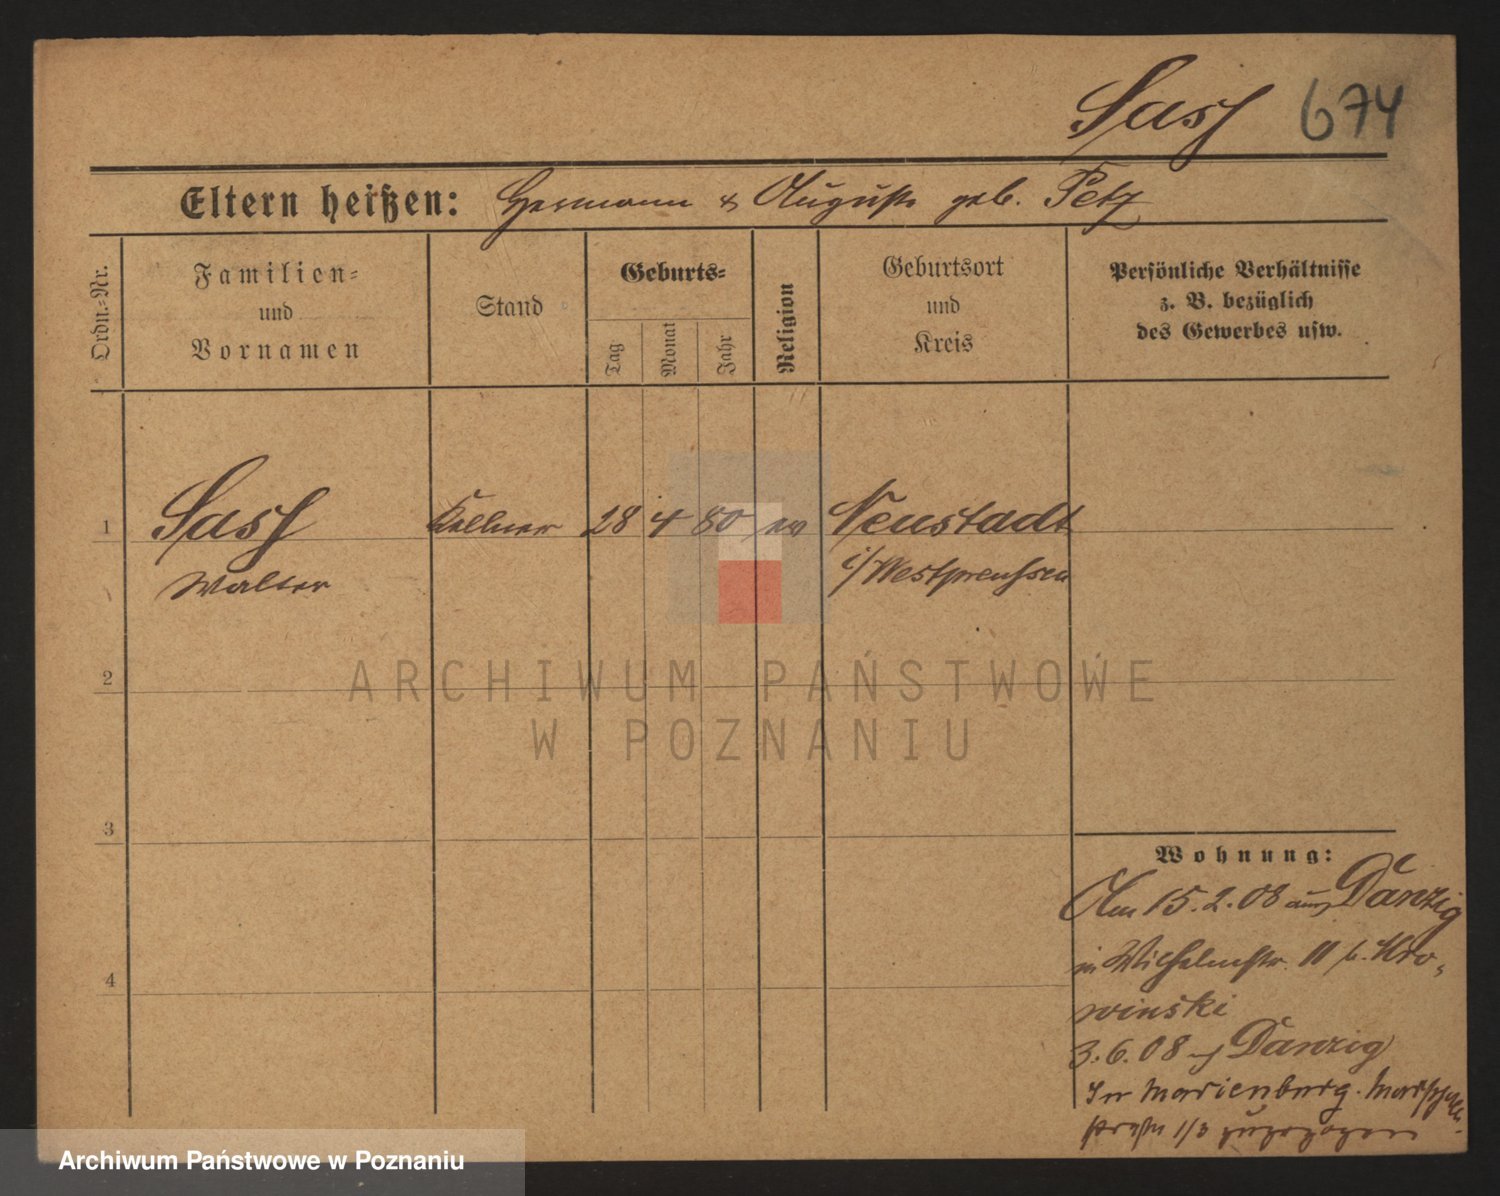 Sass 674
Eltern heißen: Hermann & Auguste geb. Petz
Ordn.-Nr.
Familien-
und
Vornamen
Stand
Geburts-
Tag
Monat
Jahr
Religion
Geburtsort
und
Kreis
Persönliche Verhältnisse
z. B. bezüglich
des Gewerbes usw.
1 Sass Kellner 28 4 80 ev Neustadt
Walter i/Westpreussen
2
ARCHIWUM PAŃSTWOWE
W POZNANIU
3
Wohnung:
Am 15.2.08 aus Danzig
in Wilhelmstr. 11 b. Kro-
winski
4
3.6.08 n/ Danzig
In Marienburg
1/3 zugezogen
Archiwum Państwowe w Poznaniu